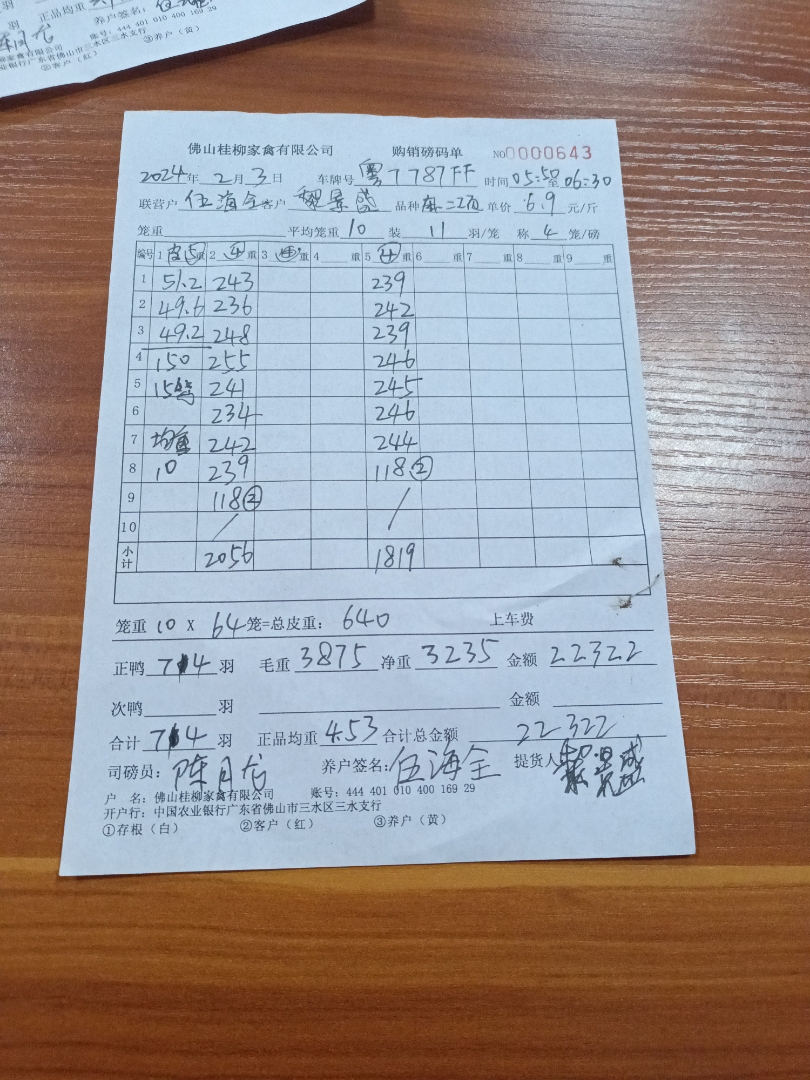 羽 正品均重 养户签名：
账号：444 401 010 400 169 29
业银行广东省佛山市三水区三水支行
②客户（红） ③养户（黄）
佛山桂柳家禽有限公司 购销磅码单 NO 0000643
2024年 2月 3日 车牌号 粤T787FF 时间 05:50至06:30
联营户 伍海全 客户 品种 麻二项 单价 6.9 元/斤
笼重 平均笼重 10 装 11 羽/笼 称 4 笼/磅
编号 1 皮5 重 2 重 3 重 4 重 5 重 6 重 7 重 8 重 9 重
1 51.2 243 239
2 49.6 236 242
3 49.2 248 239
4 150 255 246
5 15笼 241 245
6 234 246
7 均重 242 244
8 10 239 118②
9 118②
10 / /
小计 2056 1819
笼重 10 X 64 笼=总皮重： 640 上车费
正鸭 714 羽 毛重 3875 净重 3235 金额 22322
次鸭 羽 金额
合计 714 羽 正品均重 4.53 合计总金额 22322
司磅员： 陈月龙 养户签名： 伍海全 提货人
户 名：佛山桂柳家禽有限公司 账号：444 401 010 400 169 29
开户行：中国农业银行广东省佛山市三水区三水支行
①存根（白） ②客户（红） ③养户（黄）